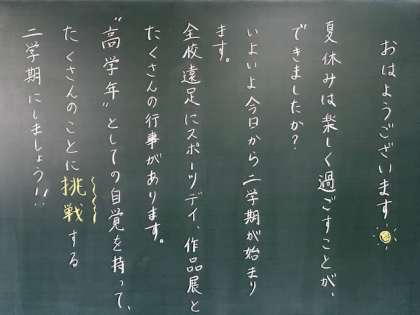 おはようございます
夏休みは楽しく過ごすことが、
できましたか？
いよいよ今日から二学期が始まり
ます。
全校遠足にスポーツデイ、作品展と
たくさんの行事があります。
"高学年"としての自覚を持って、
たくさんのことに挑戦する
二学期にしましょう!!